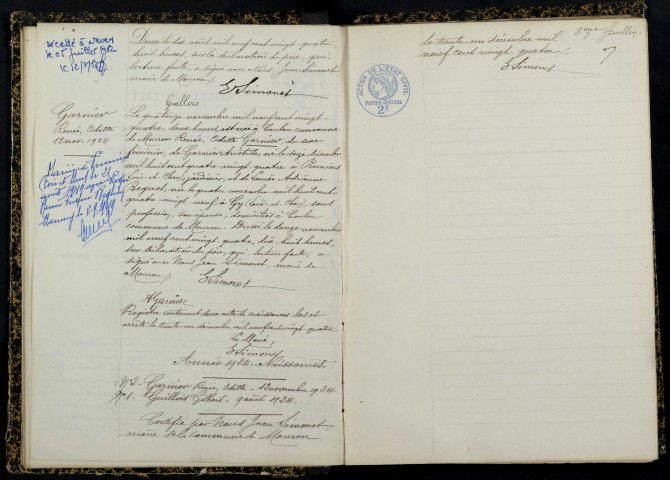 décédé à Nevers
le 05 juillet 1982
Dressé le dix août mil neuf cent vingt quatre
huit heures, sur la déclaration du père, qui,
lecture faite, a signé avec nous, Jean Simonet
maire de Mouron /.
E Simonet
Guillois
Garnier
Renée, Odette
12 nov. 1924
Le douze novembre mil neuf cent vingt-
quatre, deux heures, est née à Coulon commune
de Mouron Renée, Odette Garnier, du sexe
féminin, de Garnier Aristides, né le seize
mil huit cent quatre-vingt-quatre à
Loir et Cher, jardinier, et de Louise Adrienne
née le quatre novembre mil huit cent
quatre-vingt-neuf à Gy (Loir et Cher), sans
profession, son épouse, domiciliés à Coulon
commune de Mouron. Dressé le douze novembre
mil neuf cent vingt quatre, dix huit heures,
sur déclaration du père, qui, lecture faite, a
signé avec Nous Jean Simonet, maire de
Mouron /.
E Simonet
A Garnier
Registre contenant deux actes de naissances clos et
arrêté le trente un décembre mil neuf cent vingt quatre
Le Maire,
E Simonet
Année 1924 - Naissances.
N°2 - Garnier Renée, Odette - 12 novembre 1924
N°1 - Guillois Gilbert - 9 août 1924.
Certifié par Nous Jean Simonet
maire de la commune de Mouron
le trente-un décembre mil
neuf cent vingt quatre /.
E Simonet
5me feuillet
ACTES DE L'ETAT CIVIL
PAPIER SPECIAL
2F